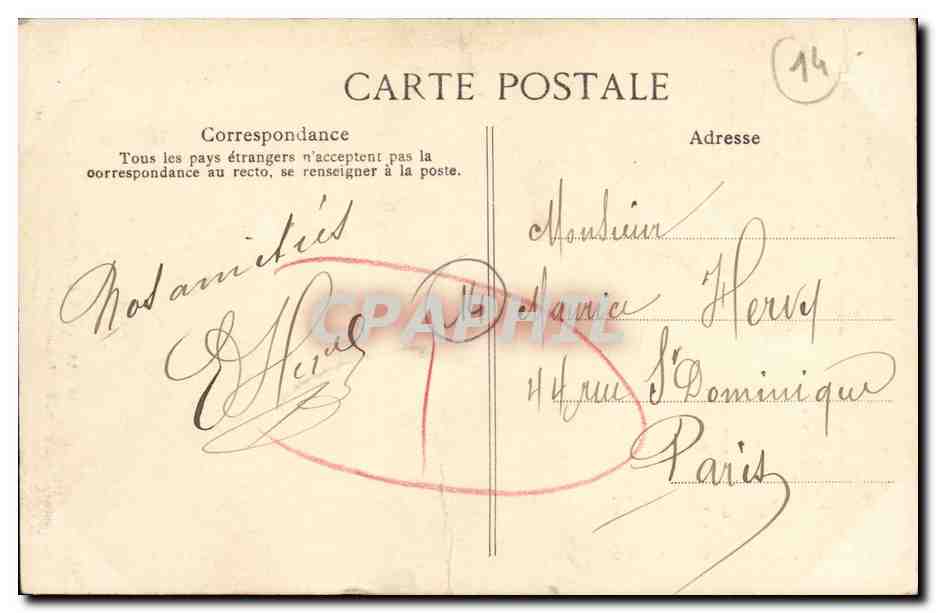 14
CARTE POSTALE
Correspondance
Tous les pays étrangers n'acceptent pas la
correspondance au recto, se renseigner à la poste.
Adresse
Nos amitiés
Monsieur
Maurice Hervy
44 rue St Dominique
Paris
14
T
CPAPHIL